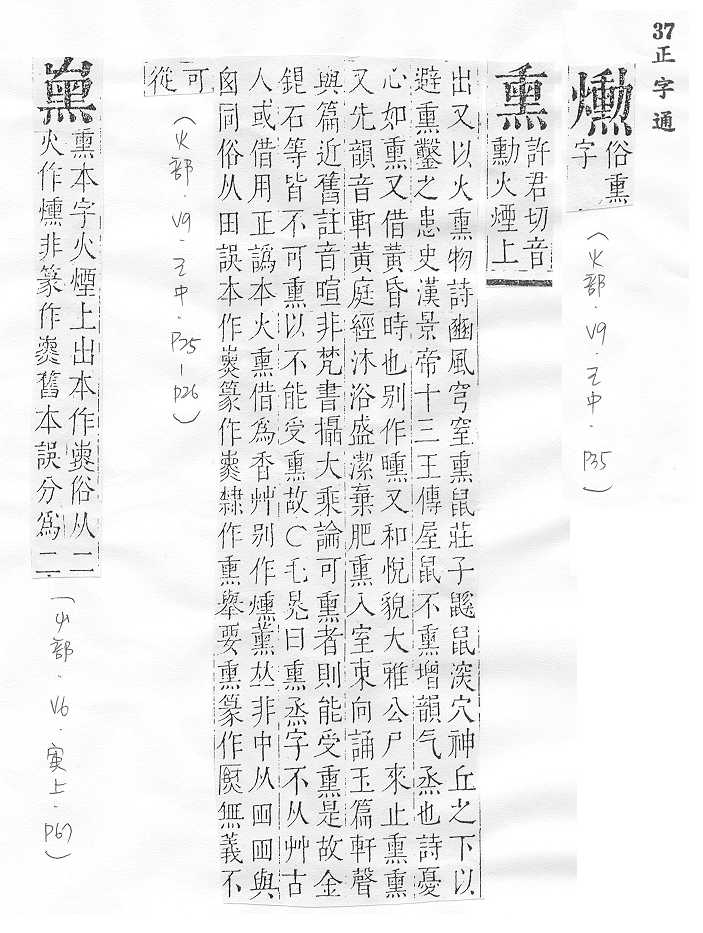 37正字通
爋
俗熏
字
(火部.V9.巳中.P35)
熏
許君切音
勳火煙上
出又以火熏物詩豳風穹窒熏鼠莊子鼷鼠深穴神丘之下以
避熏鑿之患史漢景帝十三王傳屋鼠不熏增韻气烝也詩憂
心如熏又借黃昏時也别作曛又和悅貌大雅公尸來止熏熏
又先韻音軒黃庭經沐浴盛潔棄肥熏入室東向誦玉篇軒聲
與篇近舊註音暄非梵書攝大乘論可熏者則能受熏是故金
鋃石等皆不可熏以不能受熏故○毛晃曰熏烝字不从艸古
人或借用正譌本火熏借爲香艸别作燻薰𠀤非中从囬囬與
囪同俗从田誤本作㷱篆作㷱隸作熏舉要熏篆作㷄無義不
可從
(火部.V9.巳中.P25-P26)
熏本字火煙上出本作㷱俗从二
火作爋非篆作㷱舊本誤分爲二
(屮部.V6.寅上.P67)